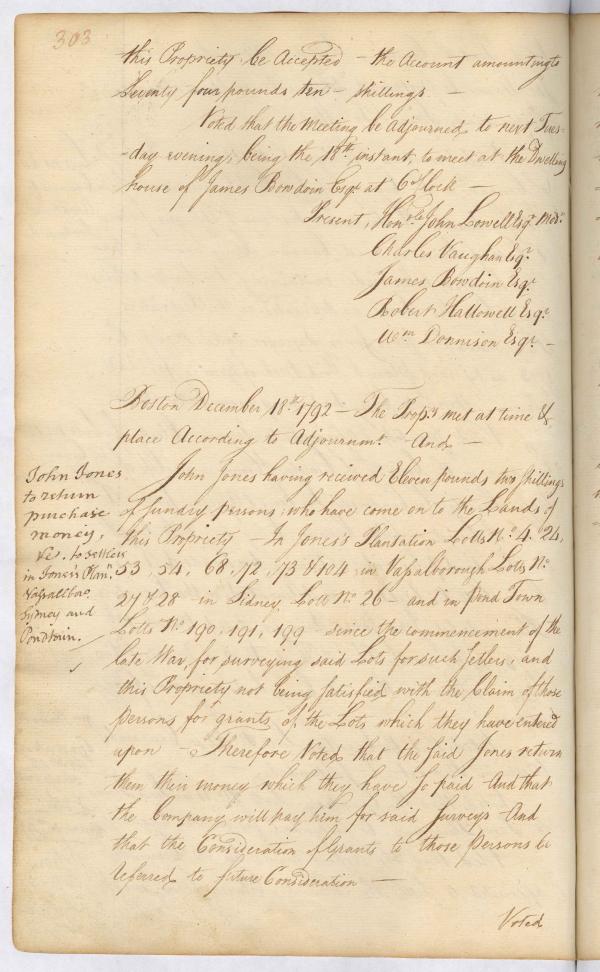 303
this Propriety be Accepted – the Account amounting to
Seventy four pounds ten – shillings. –
Voted that the Meeting be Adjourned to next Tues-
-day evening, being the 18th instant, to meet at the Dwelling
house of James Bowdoin Esqr at 6 Clock –
Present, Honble John Lowell Esqr Modr
Charles Vaughan Esqr
James Bowdoin Esqr
Robert Hallowell Esqr
Wm Dennison Esqr –
Boston December 18th 1792 – The Proprs met at time &
place According to Adjournmt And –
John Jones
to return
purchase
money,
&c. to settlers
in Jones's Plann
Vassalbo
Sydney and
Pondtown.
John Jones having received Eleven pounds two shillings
of sundry persons, who have come on to the Lands of
this Propriety – In Jones's Plantation Lotts No 4, 24,
53, 54, 68, 72, 73 & 104, in Vassalborough Lotts No
27 & 28 – in Sidney Lott No 26 – and in Pond Town
Lotts No 190, 191, 199 since the commencement of the
late War, for surveying said Lots for such Setlers, and
this Propriety not being satisfied with the Claim of those
persons for grants of the Lots which they have entered
upon – Therefore Voted that the said Jones return
them their money which they have so paid And that
the Company will pay him for said Surveys And
that the Consideration of Grants to those Persons be
referred to future Consideration –
Voted